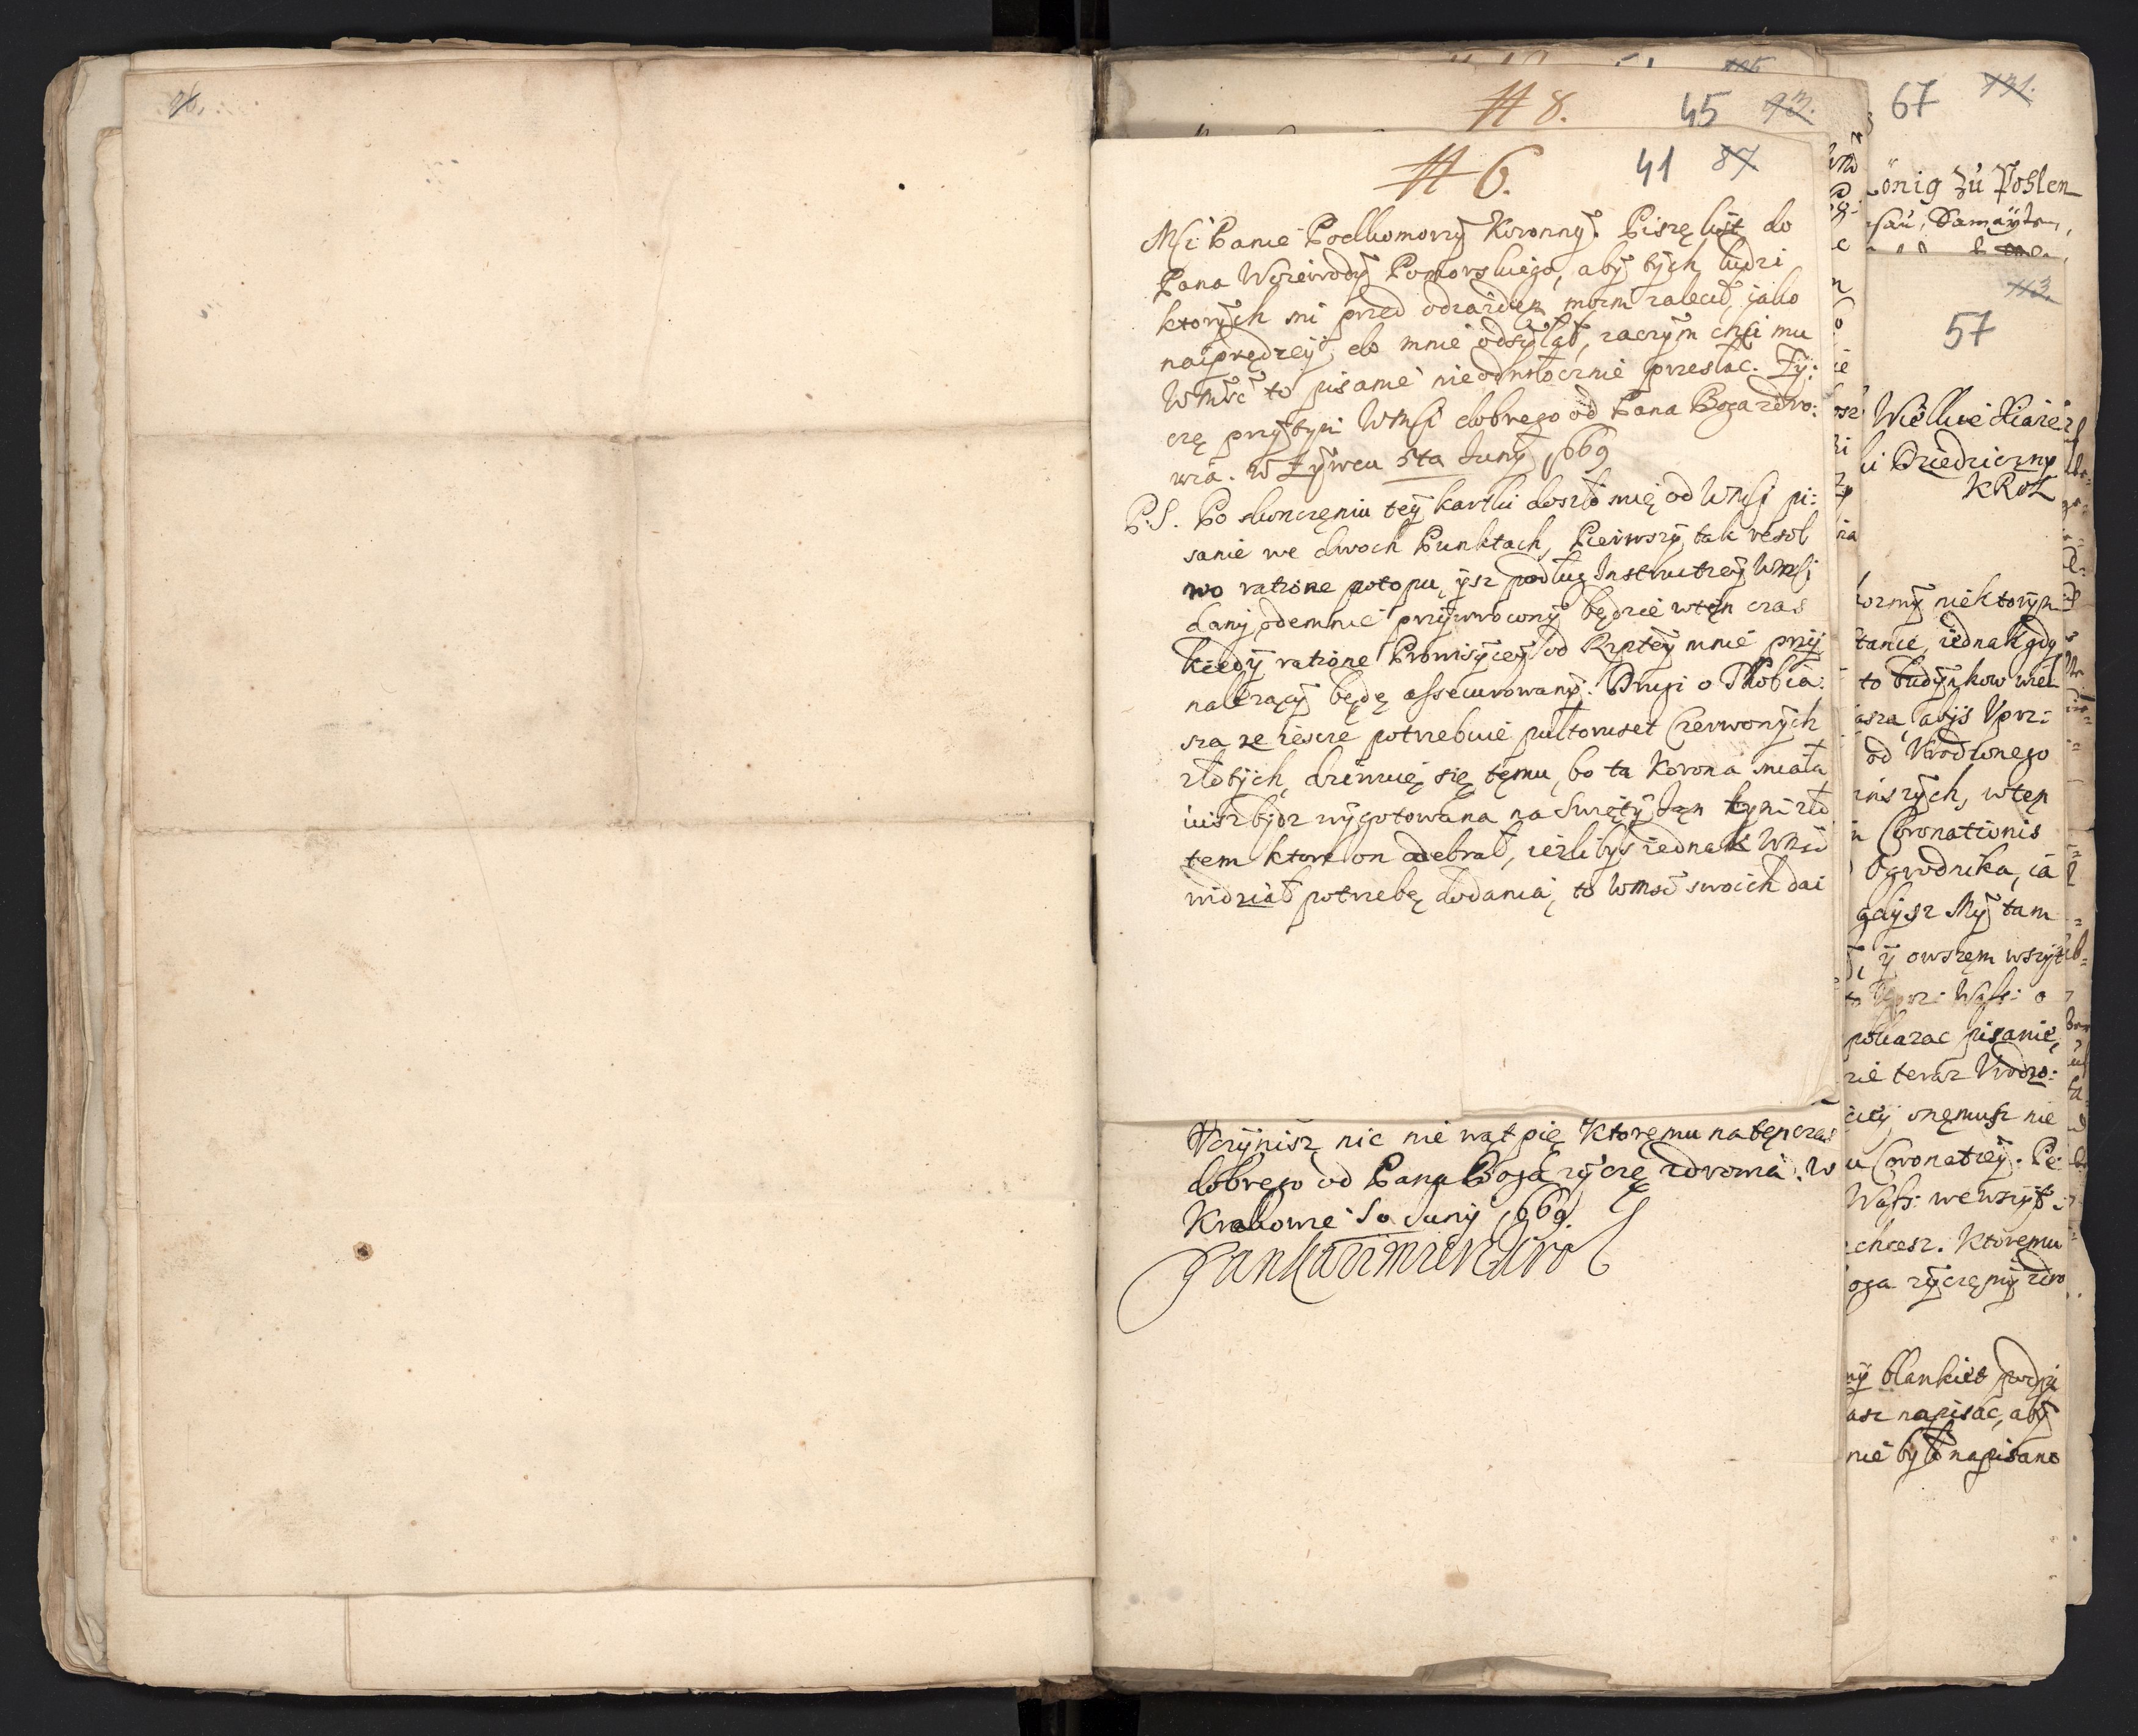 26.
# 8. 45 93.
# 6. 41 87
Mći Panie Podkomorzÿ Koronnÿ. Piszę list do
Pana Woiewodÿ Pomorskiego, abÿ tÿch ludzi
ktorÿch mi przed odiazdem moim zalecił, iako
naÿprędzeÿ do mnie odsÿłał, zaczÿm chći mu
Wmść to pisanie nieodwłocznie przesłac. Zÿ:
czę przÿtÿm WMści dobrego od Pana Boga zdro:
wia. W Zÿwcu 5ta Junÿ 1669
P.S. Po skonczęniu teÿ kartki doszło mię od WMści pi:
sanie we dwoch Punktach, Pierwszÿ tak resol
wo ratione potopu, ÿsz podług Instructieÿ WMści
danÿ odemnie przÿwroconÿ będzie wten czas
kiedÿ ratione Prowisÿeÿ od Rzpteÿ mnie przÿ
nalezącÿ będę assecurowanÿ. Drugi o Thobia:
sza ze iescze potrzebuie pułtoruset Czerwonÿch
złotÿch, dziwuię się temu, bo ta Korona miała
iusz bÿdz wÿgotowana na Swiętÿ Jan tÿm zło
tem ktore on odebrał, iezlibÿs iednak Wmść
widział potrzebę dodania, to Wmość swoich dai
Vczÿnisz nic nie wątpię Ktoremu na ten czas
dobrego od Pana Boga zÿczę zdrowia. W
Krakowie So Junÿ 1669.
Jan Kazimierz Krol
67 131.
önig zu Pohlen
113.
57
Wielkie Xiąze
ki Dziedzicznÿ
KRoL
niektorÿm
tance, iednak gdÿ
to budÿnkow wiel
asza, abÿs Vprz:
od Vrodzonego
inszÿch, wten
Coronationis
Ogrodnika, ia
gdÿsz Mÿ tam
ÿ owszem wszÿt
pokazac pisanie,
zie teraz Vrodzo:
onemusz nie
u Coronatieÿ. Pe
Wasz: we wszÿt:
chcesz. Ktoremu
oga zÿczęmÿ zdro
nÿ blankiet podpi
asz napisac, abÿ
nie bÿło napisano